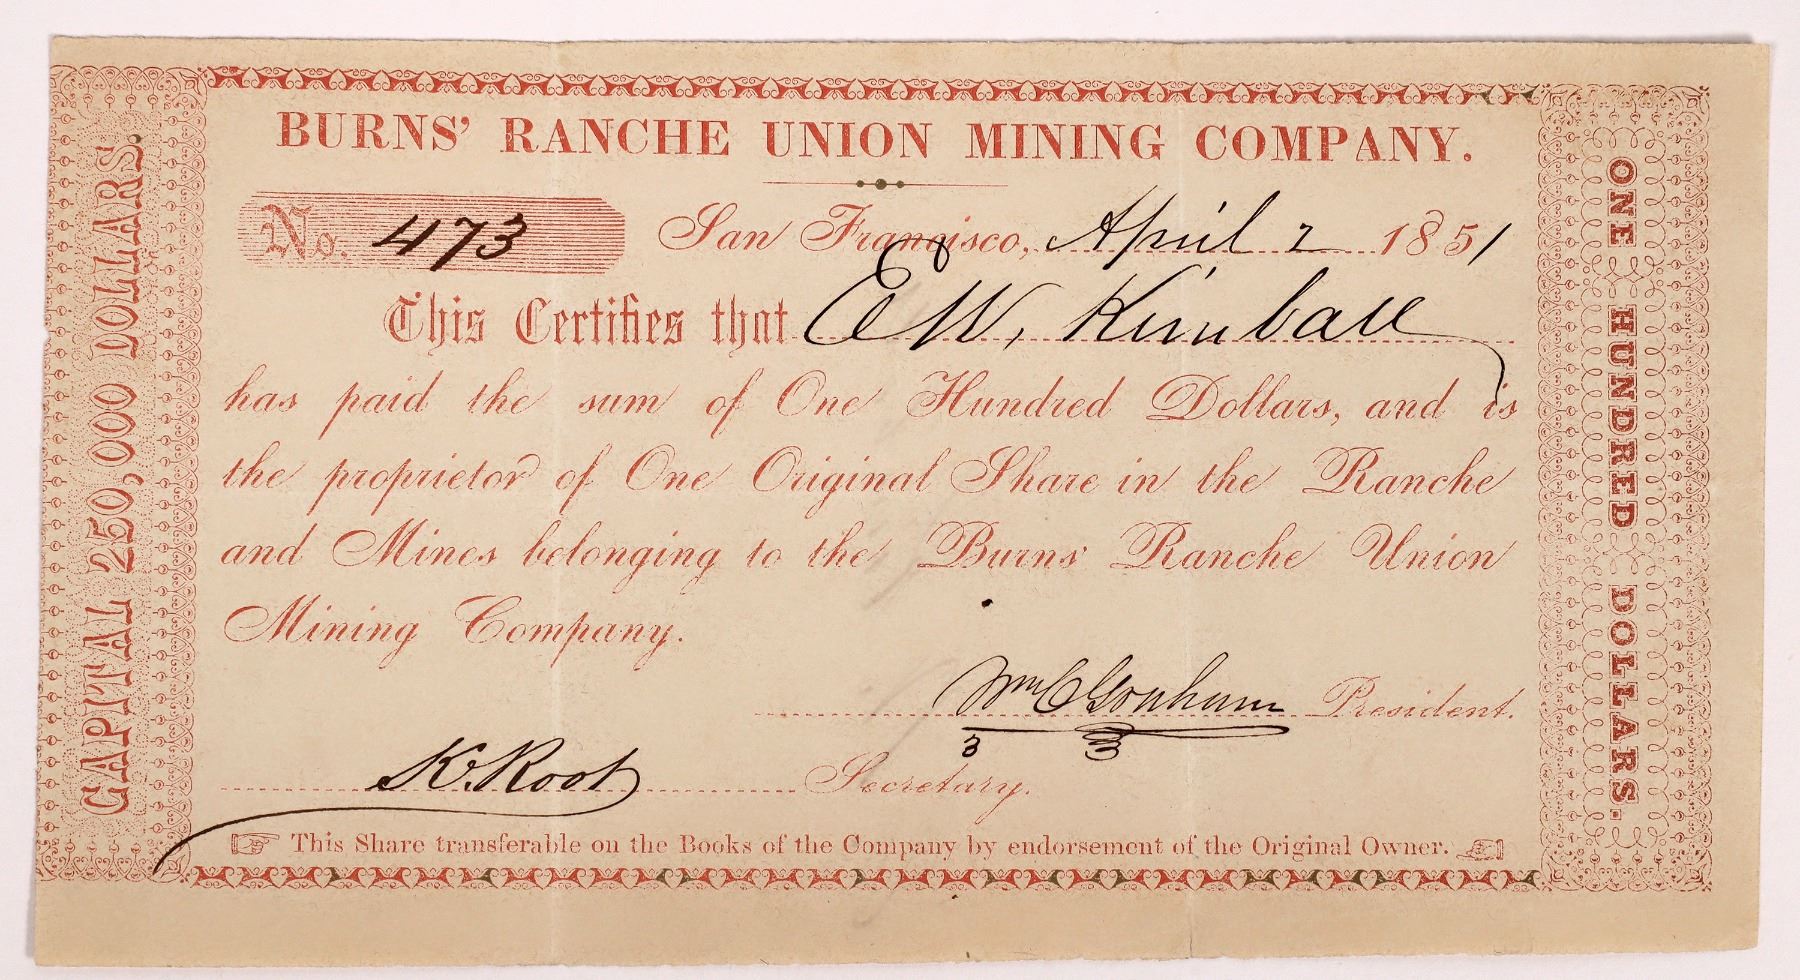 BURNS' RANCHE UNION MINING COMPANY.
No. 473 San Francisco, April 2 1851
This Certifies that E W. Kimball
has paid the sum of One Hundred Dollars, and is
the proprietor of One Original Share in the Ranche
and Mines belonging to the Burns' Ranche Union
Mining Company.
Wm C Gorham President.
K. Root Secretary.
This Share transferable on the Books of the Company by endorsement of the Original Owner.
CAPITAL 250,000 DOLLARS.
ONE HUNDRED DOLLARS.